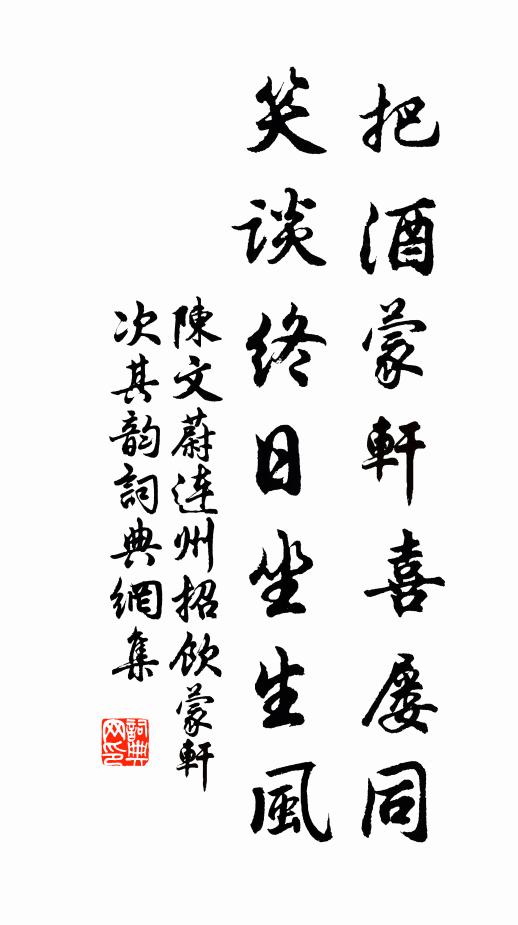 把酒蒙軒喜屡同
笑談終日坐生風
陳文蔚連州招飲蒙軒
次其韵詞典網集
詞典
网印